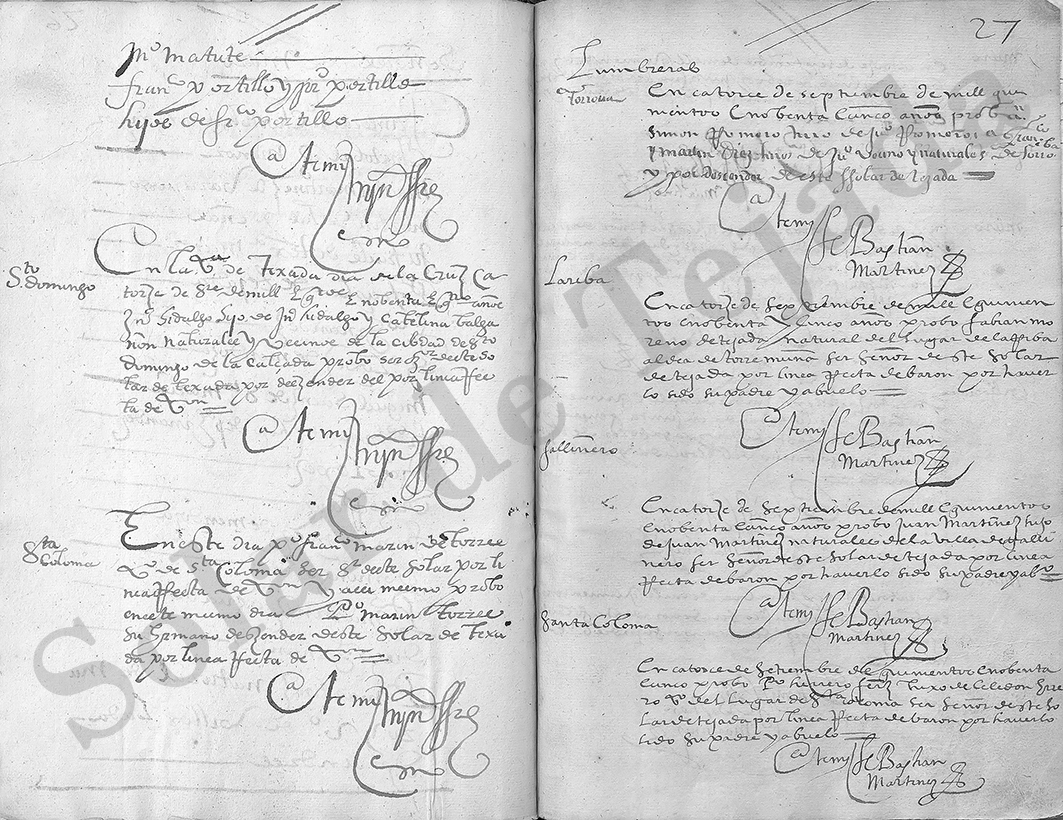 mº matute
franco portillo y Juº portillo
hijos de frº portillo
Ante mi
Sto domingo
En la Va de Texada dia de la Cruz Ca-
torze de 7re de mill Eqos E nobenta E años
Hidalgo Hijo de Hidalgo y Catelina
Naturales y Vecinos de la Cibdad de Sto
domingo de la Calçada probo ser Sr deste so
lar de texada por deszender del por linia Rec
ta de Von
Ante mi
Sta Coloma
En este dia po franco marin de torres
Vo de sta Coloma ser Sr deste Solar por li
nia Recta de Von y assi mesmo probo
en este mismo dia Po marin torres
su hermano deszender deste Solar de texa
da por linea Recta de Von
Ante mi
27
Lumbreras
En catorce de septiembre de mill qui
nientos E nobenta E cinco años probo
Simon Romero hijo de Juº Romero
y martin diez hijo de Juº y naturales de
y por descender de este Solar de tejada
Ante mi Se Bastian
Martinez
Lariba
En catorze de Septiembre de mill E quinien
tos E nobenta y Cinco años probo fabian mo
reno de tejada natural del lugar de la Riba
aldea de torremuña ser Señor deste Solar
de tejada por linea Recta de baron por haver
lo sido su padre y abuelo
Ante mi Se Bastian
Martinez
Gallinero
En catorze de Septiembre de mill E quinientos
E nobenta E cinco años probo Juan Martinez hijo
de Juan Martinez naturales de la Villa de galli
nero ser Señor deste Solar de tejada por linea
Recta de baron por haverlo sido su padre y abuo
Ante mi Se Bastian
Martinez
Santa Coloma
En catorce de Setiembre de quinientos E nobenta
E cinco probo Po herrero hixo de Celedon herre
ro Vo del lugar de Sta coloma ser Senor deste So
lar de tejada por linea Recta de baron por haverlo
sido su padre y abuelo
Ante mi Se Bastian
Martinez
Solar de Tejada